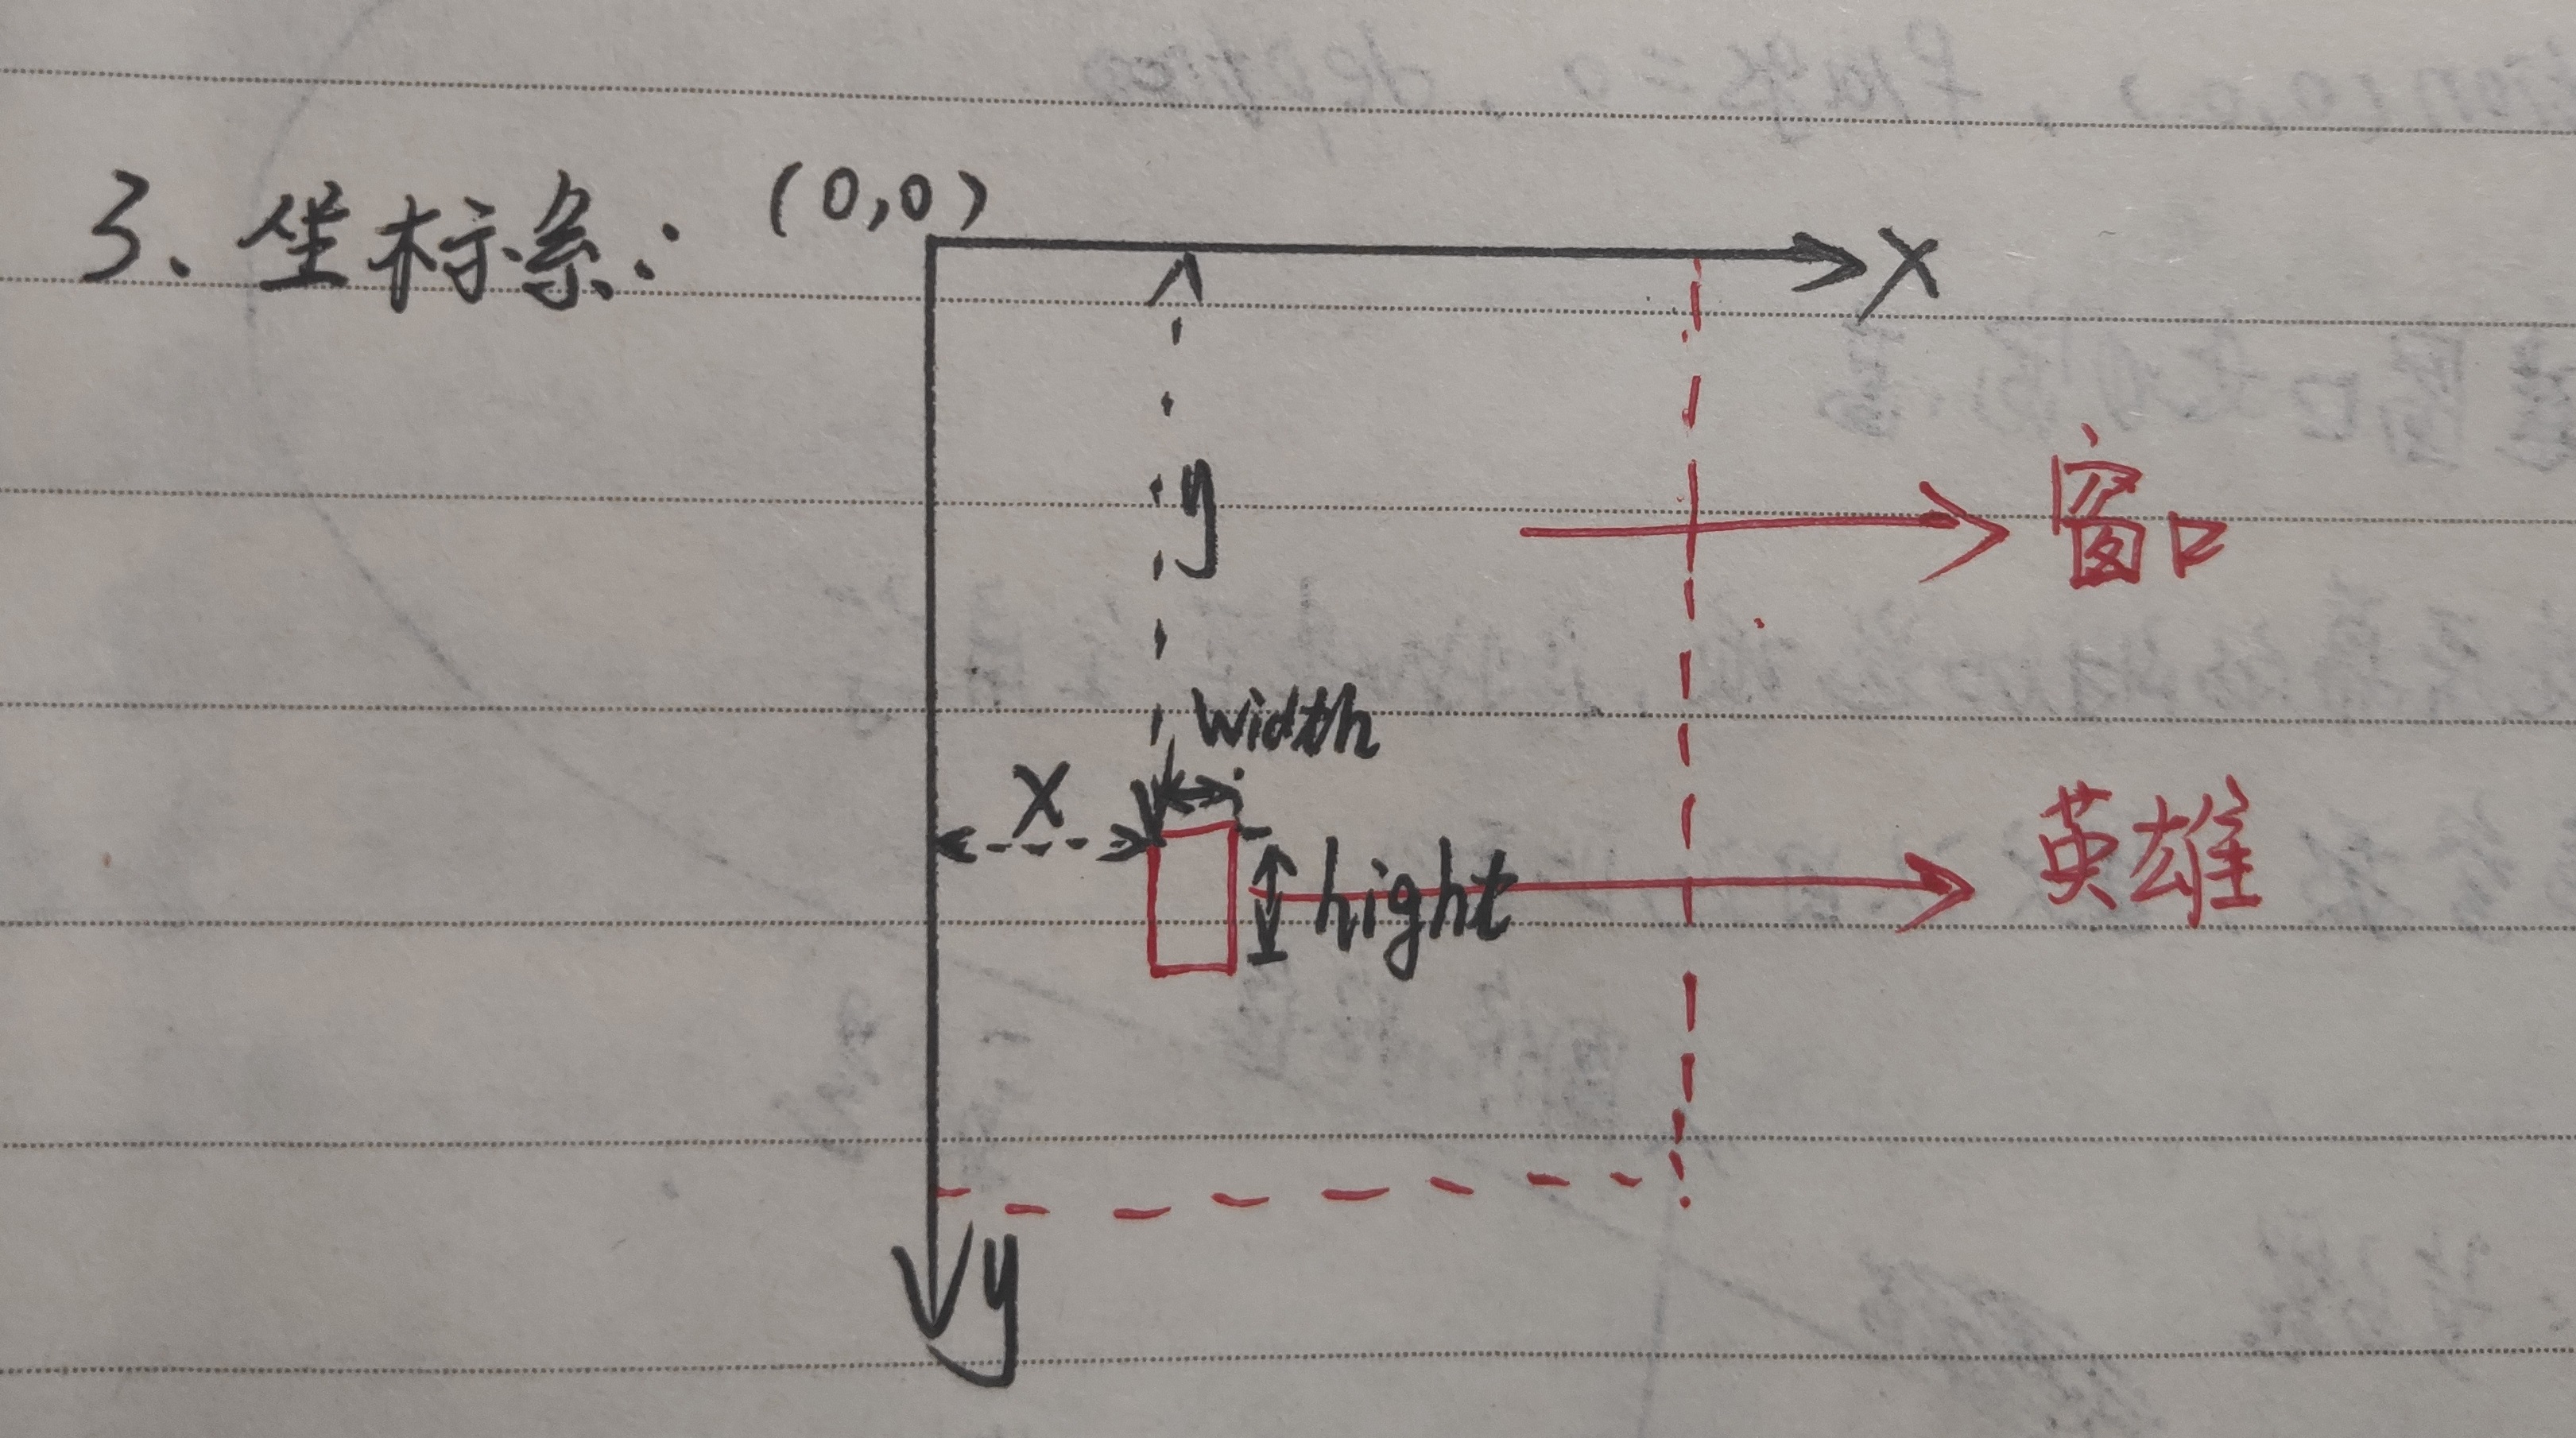 3、坐标系: (0,0)
X
y
窗口
width
X
hight
英雄
y